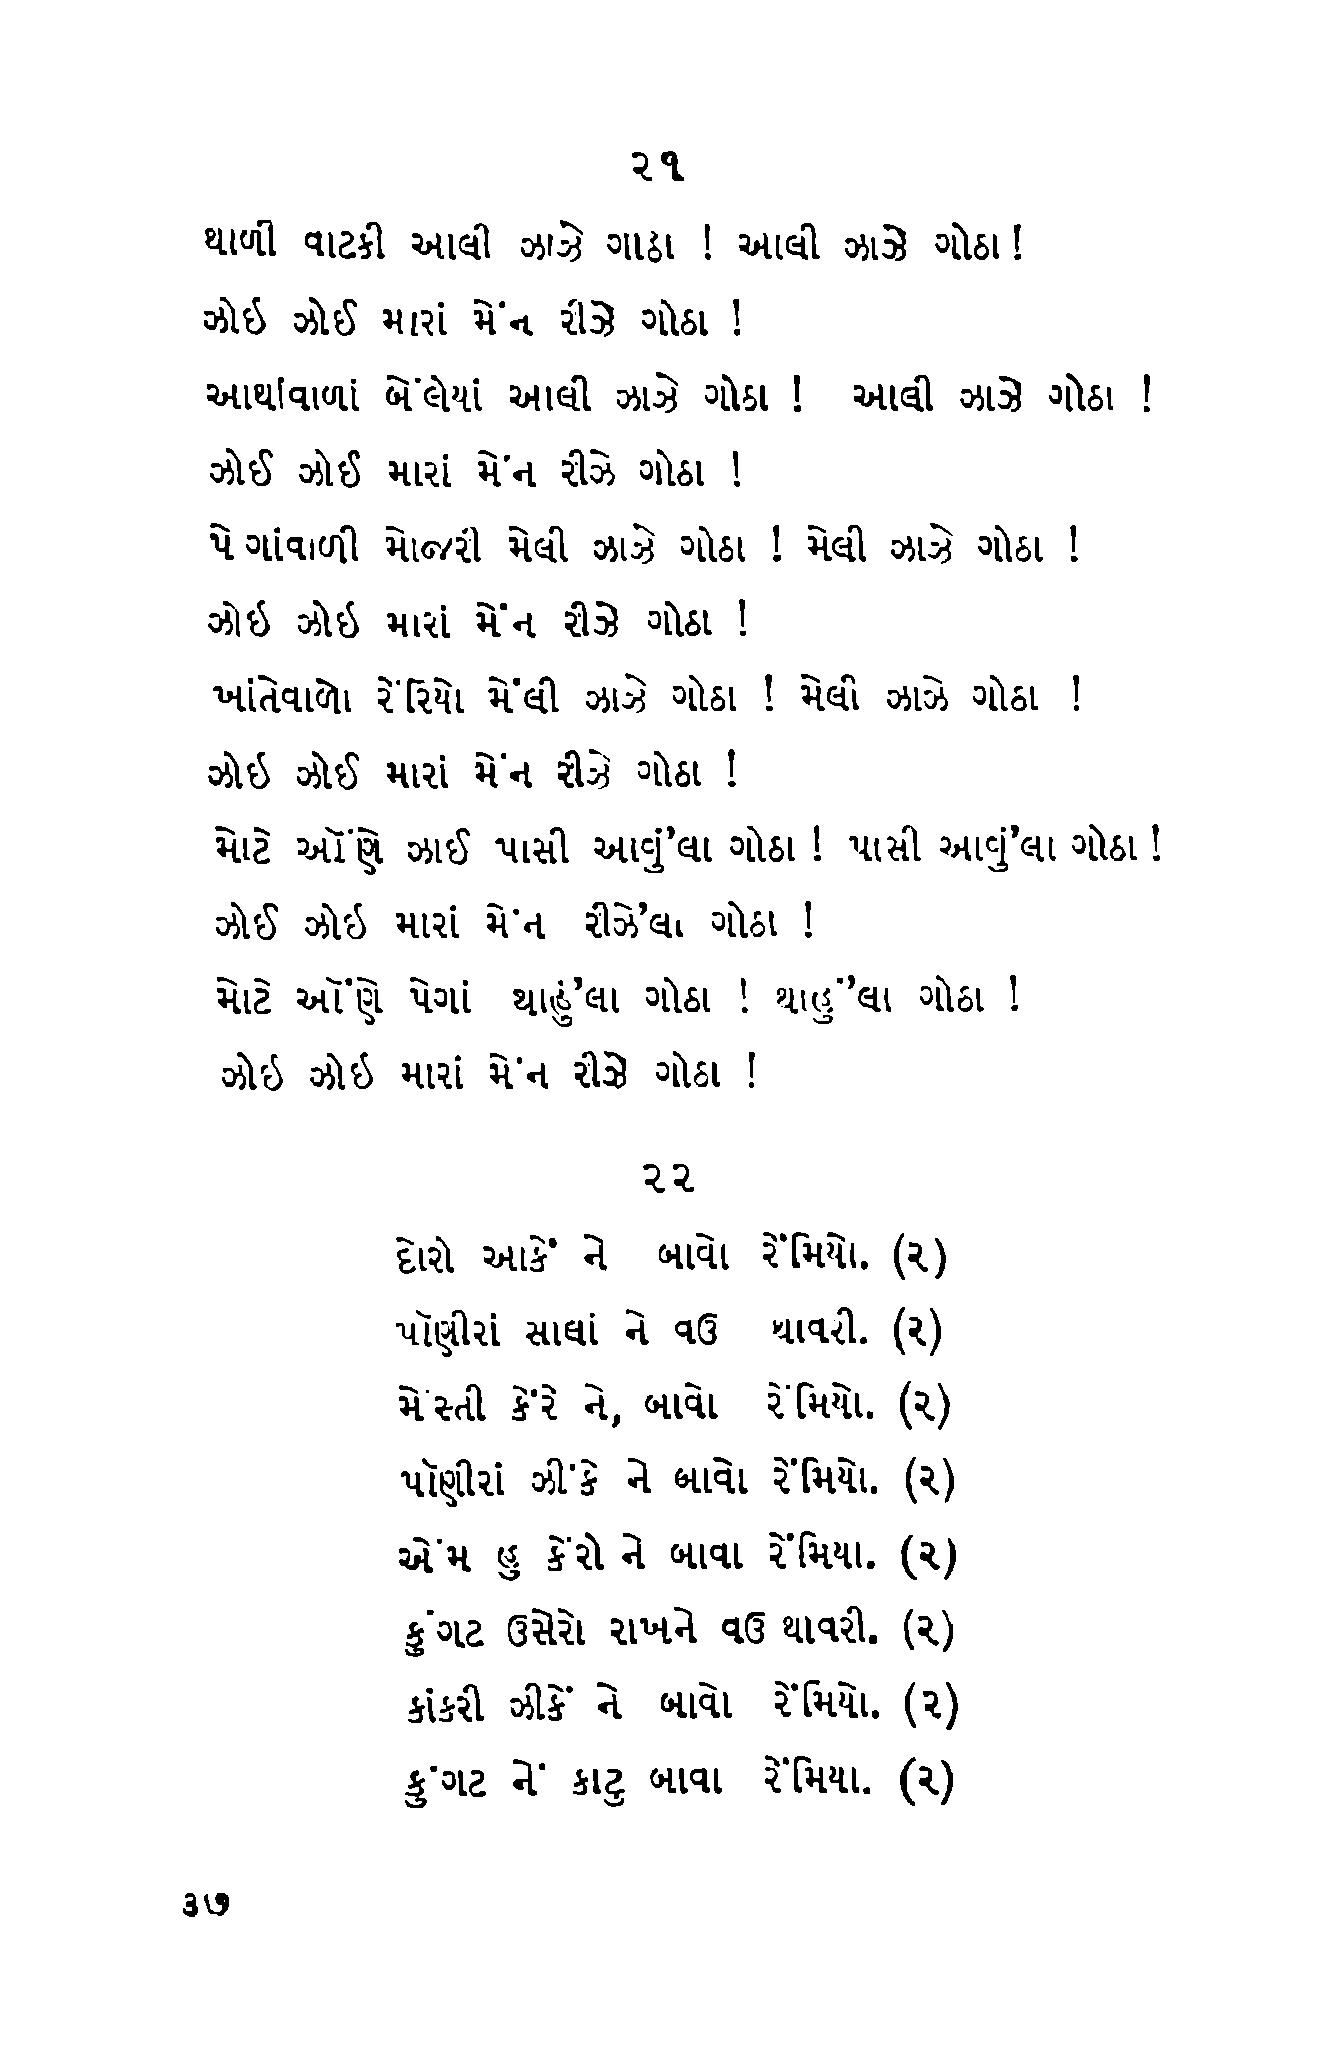 ૨૧
થાળી વાટકી આલી ઝાઝે ગાઠા ! આલી ઝાઝે ગોઠા !
ઝોઇ ઝોઈ મારાં મેં'ન રીઝે ગોઠા !
આથાંવાળાં બેંલેયાં આલી ઝાઝે ગોઠા ! આલી ઝાઝે ગોઠા !
ઝોઈ ઝોઈ મારાં મેં'ન રીઝે ગોઠા !
પેગાંવાળી મોજરી મેલી ઝાઝે ગોઠા ! મેલી ઝાઝે ગોઠા !
ઝોઇ ઝોઇ મારાં મેં'ન રીઝે ગોઠા !
ખાંતેવાળો રેંરિયો મેંલી ઝાઝે ગોઠા ! મેલી ઝાઝે ગોઠા !
ઝોઇ ઝોઈ મારાં મેં'ન રીઝે ગોઠા !
માટે ઓંણે ઝાઈ પાસી આવું'લા ગોઠા ! પાસી આવું'લા ગોઠા !
ઝોઈ ઝોઇ મારાં મેં'ન રીઝે'લા ગોઠા !
માટે ઓંણે પેગાં થાહું'લા ગોઠા ! થાહું'લા ગોઠા !
ઝોઇ ઝોઇ મારાં મેં'ન રીઝે ગોઠા !
૨૨
દોરો આકેં ને બાવો રેંમિયો. (૨)
પોંણીરાં સાલાં ને વઉ થાવરી. (૨)
મેંસ્તી કેંરે ને, બાવો રેંમિયો. (૨)
પોંણીરાં ઝીંકે ને બાવો રેંમિયો. (૨)
એંમ હુ કેંરો ને બાવા રેંમિયા. (૨)
કુંગટ ઉસેરો રાખને વઉ થાવરી. (૨)
કાંકરી ઝીકેં ને બાવો રેંમિયો. (૨)
કુંગટ નેં કાટુ બાવા રેંમિયા. (૨)
૩૭